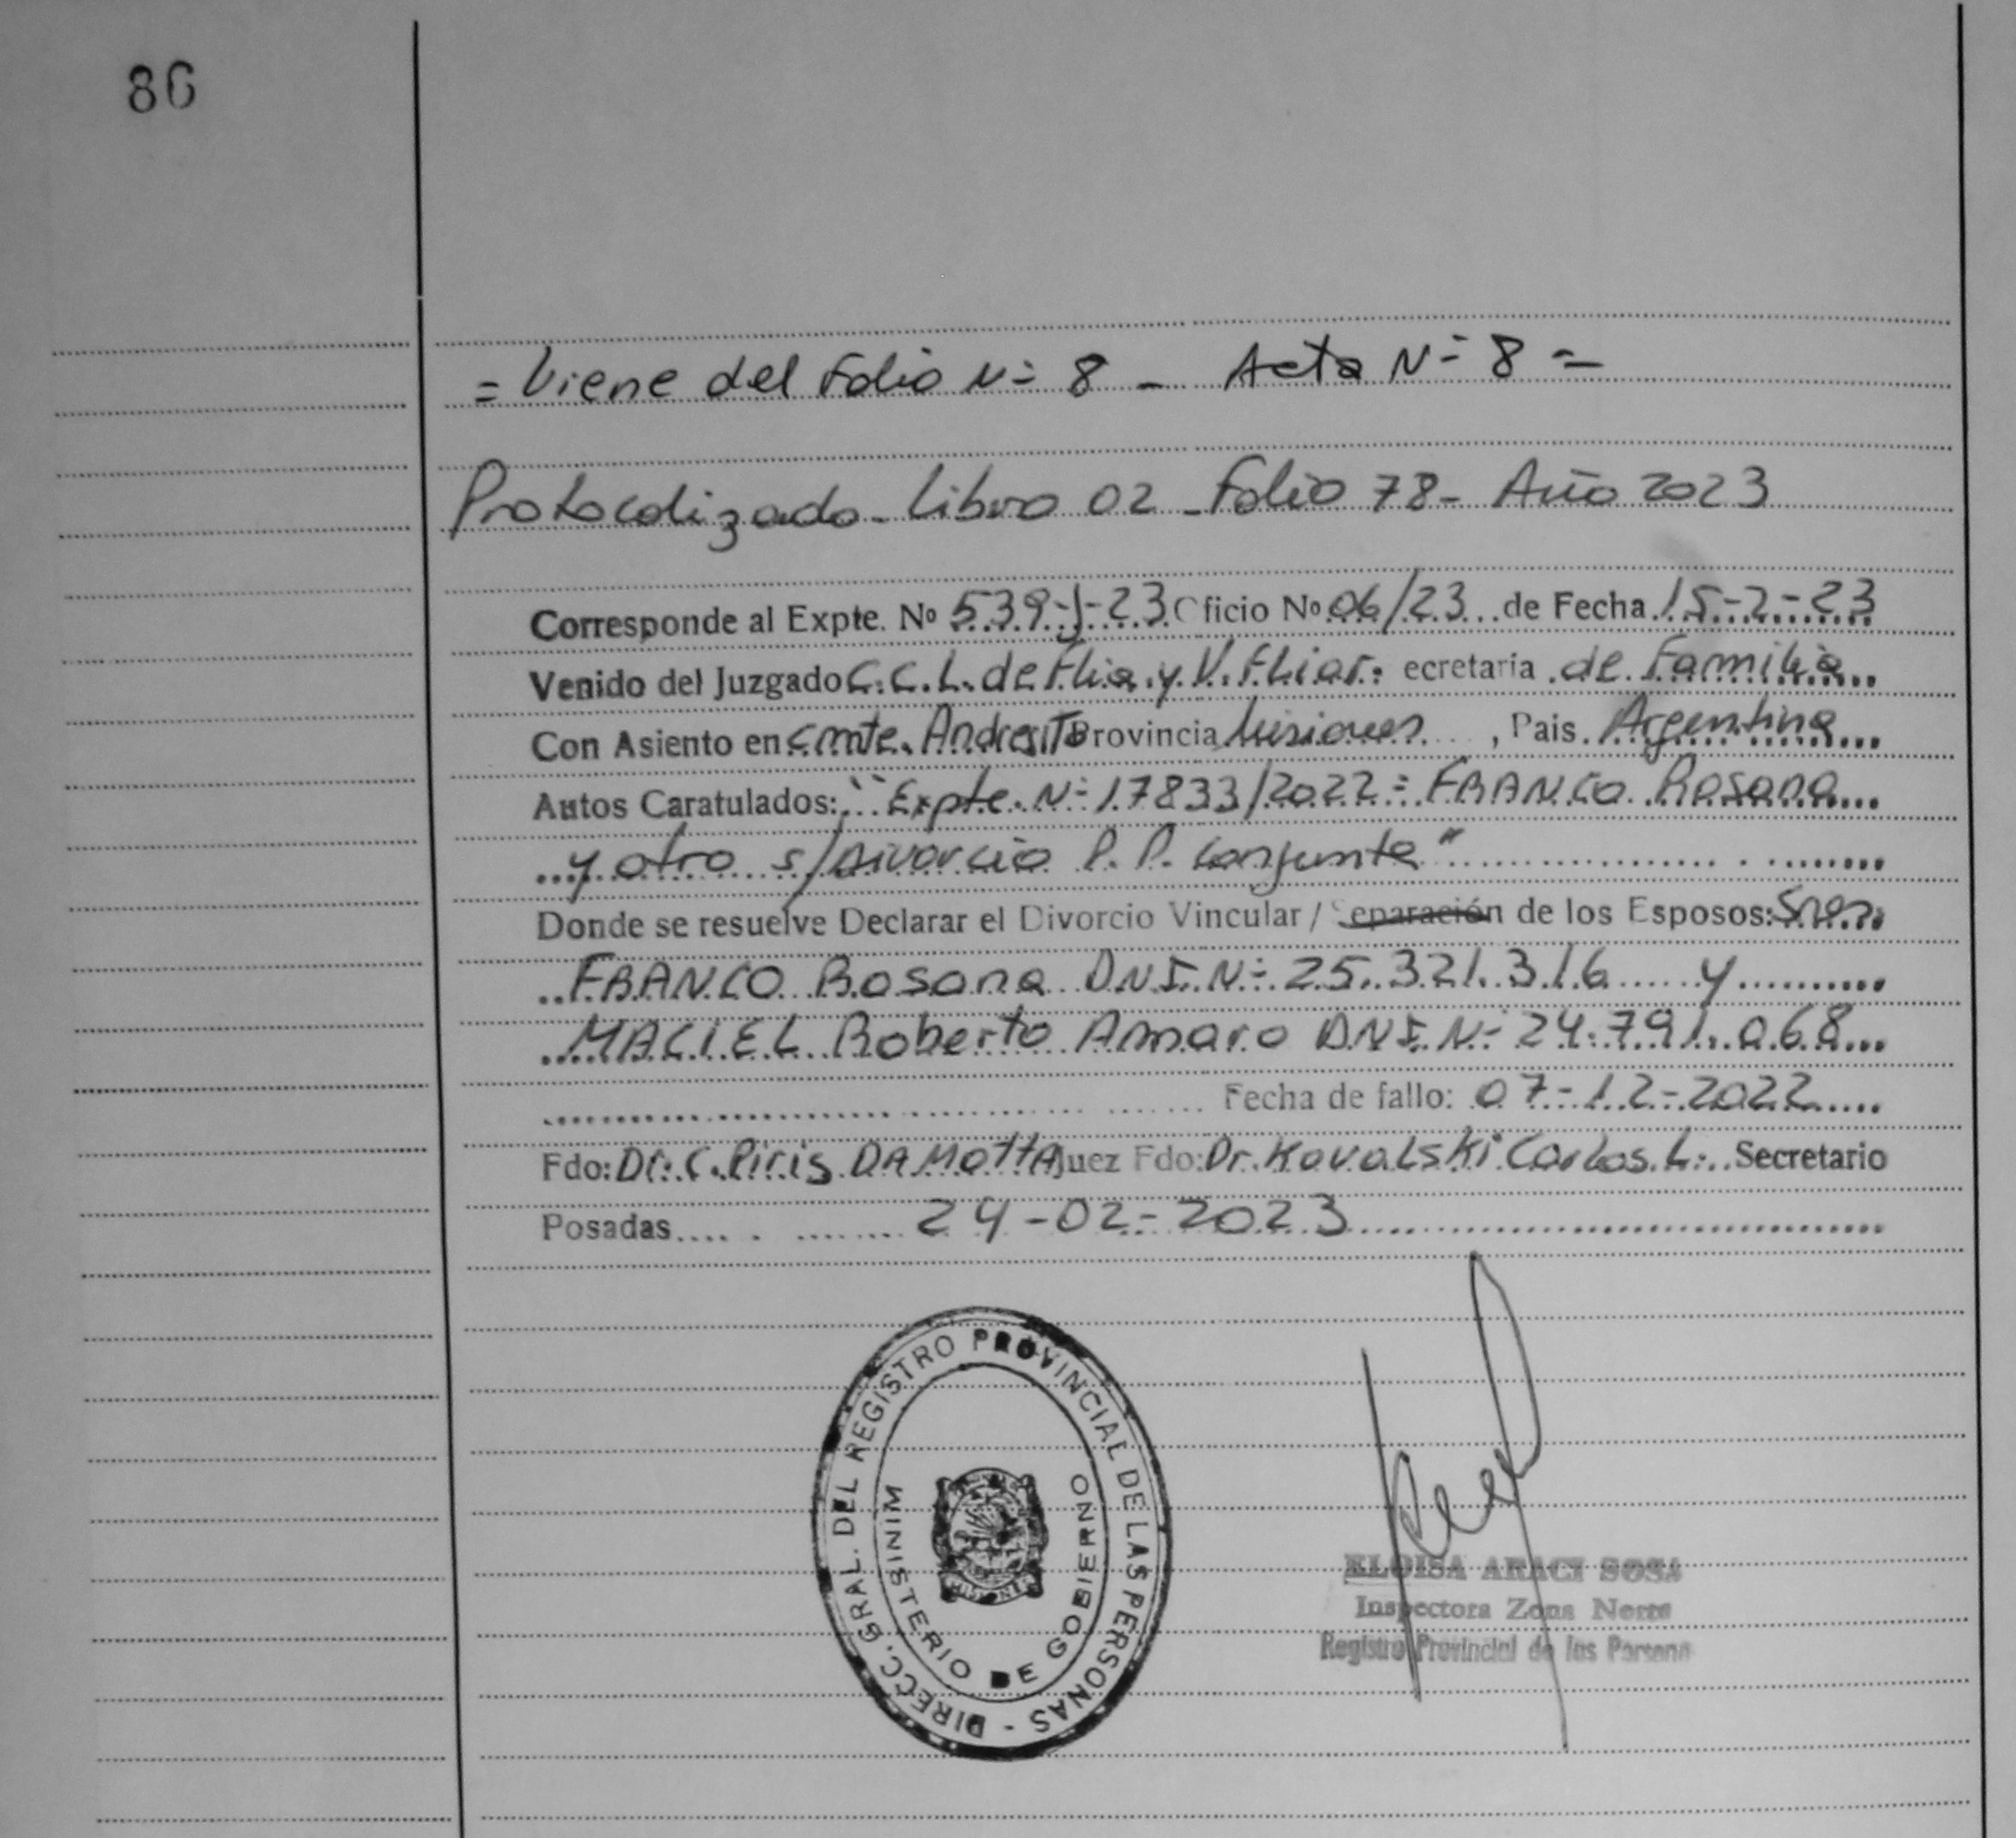 86
= Viene del Folio Nº 8 - Acta Nº 8 =
Protocolizado - Libro 02 - Folio 78 - Año 2023
Corresponde al Expte. Nº 539-J-23 Oficio Nº 06/23 de Fecha 15-2-23
Venido del Juzgado C.C.L. de Flia. y V. Fliar. ecretaria de Familia
Con Asiento en Cmte. Andresito Provincia Misiones, Pais. Argentina
Autos Caratulados: "Expte. Nº 17833/2022 = FRANCO Rosana
y otro s/Divorcio P.P. conjunta"
Donde se resuelve Declarar el Divorcio Vincular / Separación de los Esposos: Sres.
FRANCO Rosana D.N.I. Nº 25.321.316 y
MACIEL Roberto Amaro DNI. Nº 24.791.068
Fecha de fallo: 07-12-2022
Fdo: Dr. C. Piris DA MOTTA Juez Fdo: Dr. Kovalski Carlos L. Secretario
Posadas 24-02-2023
DIRECC. GRAL. DEL REGISTRO PROVINCIAL DE LAS PERSONAS -
MINISTERIO DE GOBIERNO
ELOISA ARACI SOSA
Inspectora Zona Norte
Registro Provincial de las Persona